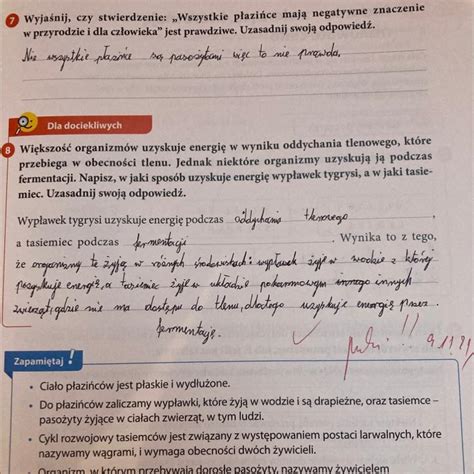 7 Wyjaśnij, czy stwierdzenie: „Wszystkie płazińce mają negatywne znaczenie
w przyrodzie i dla człowieka” jest prawdziwe. Uzasadnij swoją odpowiedź.
Nie wszystkie płazińce są pasożytami więc to nie prawda.
Dla dociekliwych
8 Większość organizmów uzyskuje energię w wyniku oddychania tlenowego, które
przebiega w obecności tlenu. Jednak niektóre organizmy uzyskują ją podczas
fermentacji. Napisz, w jaki sposób uzyskuje energię wypławek tygrysi, a w jaki tasie-
miec. Uzasadnij swoją odpowiedź.
Wypławek tygrysi uzyskuje energię podczas oddychania tlenowego,
a tasiemiec podczas fermentacji. Wynika to z tego,
że organizmy te żyją w różnych środowiskach: wypławek żyje w wodzie z której
pozyskuje energię, a tasiemiec żyje w układzie pokarmowym innego innych
zwierząt, gdzie nie ma dostępu do tlenu, dlatego uzyskuje energię przez
fermentację.
Zapamiętaj!
• Ciało płazińców jest płaskie i wydłużone.
• Do płazińców zaliczamy wypławki, które żyją w wodzie i są drapieżne, oraz tasiemce –
pasożyty żyjące w ciałach zwierząt, w tym ludzi.
• Cykl rozwojowy tasiemców jest związany z występowaniem postaci larwalnych, które
nazywamy wągrami, i wymaga obecności dwóch żywicieli.
• Organizm, w którym przebywają dorosłe pasożyty, nazywamy żywicielem